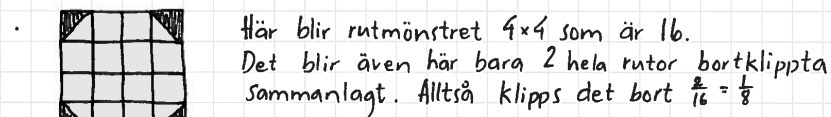 Här blir rutmönstret 4×4 som är 16.
Det blir även här bara 2 hela rutor bortklippta
sammanlagt. Alltså klipps det bort 2/16 = 1/8